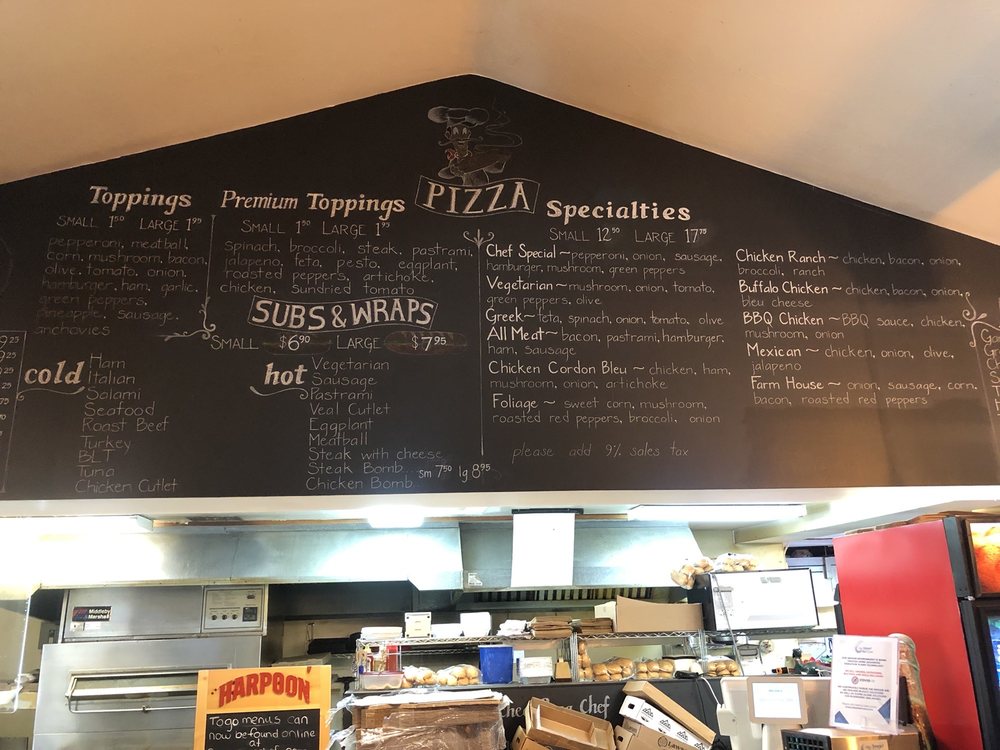 PIZZA
Toppings
SMALL 1⁵⁰ LARGE 1⁹⁵
pepperoni, meatball,
corn, mushroom, bacon,
olive, tomato, onion,
hamburger, ham, garlic,
green peppers,
pineapple, sausage,
anchovies
Premium Toppings
SMALL 1⁵⁰ LARGE 1⁹⁵
spinach, broccoli, steak, pastrami,
jalapeno, feta, pesto, eggplant,
roasted peppers, artichoke,
chicken, sundried tomato
SUBS & WRAPS
SMALL $6⁹⁰ LARGE $7⁹⁵
cold
Ham
Italian
Salami
Seafood
Roast Beef
Turkey
BLT
Tuna
Chicken Cutlet
hot
Vegetarian
Sausage
Pastrami
Veal Cutlet
Eggplant
Meatball
Steak with cheese
Steak Bomb... sm 7⁵⁰ lg 8⁹⁵
Chicken Bomb
Specialties
SMALL 12⁵⁰ LARGE 17⁷⁵
Chef Special~pepperoni, onion, sausage,
hamburger, mushroom, green peppers
Vegetarian~mushroom, onion, tomato,
green peppers, olive
Greek~feta, spinach, onion, tomato, olive
All Meat~bacon, pastrami, hamburger,
ham, sausage
Chicken Cordon Bleu ~ chicken, ham,
mushroom, onion, artichoke
Foliage ~ sweet corn, mushroom,
roasted red peppers, broccoli, onion
please add 9% sales tax
Chicken Ranch~chicken, bacon, onion,
broccoli, ranch
Buffalo Chicken~chicken, bacon, onion,
bleu cheese
BBQ Chicken~BBQ sauce, chicken,
mushroom, onion
Mexican ~ chicken, onion, olive,
jalapeno
Farm House ~ onion, sausage, corn,
bacon, roasted red peppers
Middleby
Marshall
HARPOON
Togo menus can
now be found online
at
Chef